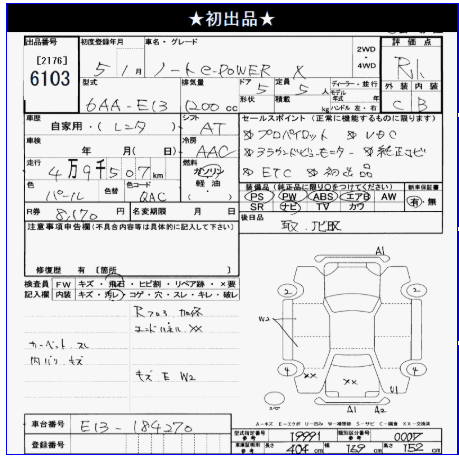 ★初出品★
出品番号
[2176]
6103
初度登録年月
5年1月
車名・グレード
ノート e-POWER X
2WD
・
4WD
評価点
R1
外装 内装
C B
型式
6AA-E13
排気量
1200 cc
ドア
5
定員
5 人
形状
積載
ディーラー・並行
モデル
年式 年
ハンドル 左・右
車歴
自家用・(レンタ)
シフト
AT
車検
年 月( 日)
冷房
AAC
走行
4万9千507km
燃料
ガソリン
軽・油
色
パール
色替
色コード
QAC
セールスポイント (正常に機能するものに限ります)
※プロパイロット ※VDC
※アラウンドビューモニター ※純正ナビ
※ETC ※初出品
装備品 (純正品に限り〇をつけてください)
PS PW ABS エアB AW
SR ナビ TV カワ
新車保証書
有・無
R券
8,170 円
名変期限 月 日
後日品
取、記取
注意事項申告欄(不具合内容等は具体的に記入して下さい)
修復歴 有 [箇所 ]
検査員
記入欄
FW キズ・飛石・ヒビ割・リペア跡・×要
内装 キズ・汚レ・コゲ・穴・スレ・キレ・破レ
Rフロア 加修
エンドパネル ××
カーペット スレ
内バリ キズ
キズ E W2
A1
2
2
W2
4
4
××
××
U1
A1 A2
スペア
車台番号
E13-184270
登録番号
A-キズ E-エクボ U-凹み W-補修跡 S-サビ C-腐食 XX-交換済
型式指定番号
参考
19991
類別区分番号
参考
0007
車検証明用
参考
長さ
404 cm
幅
169 cm
高さ
152 cm